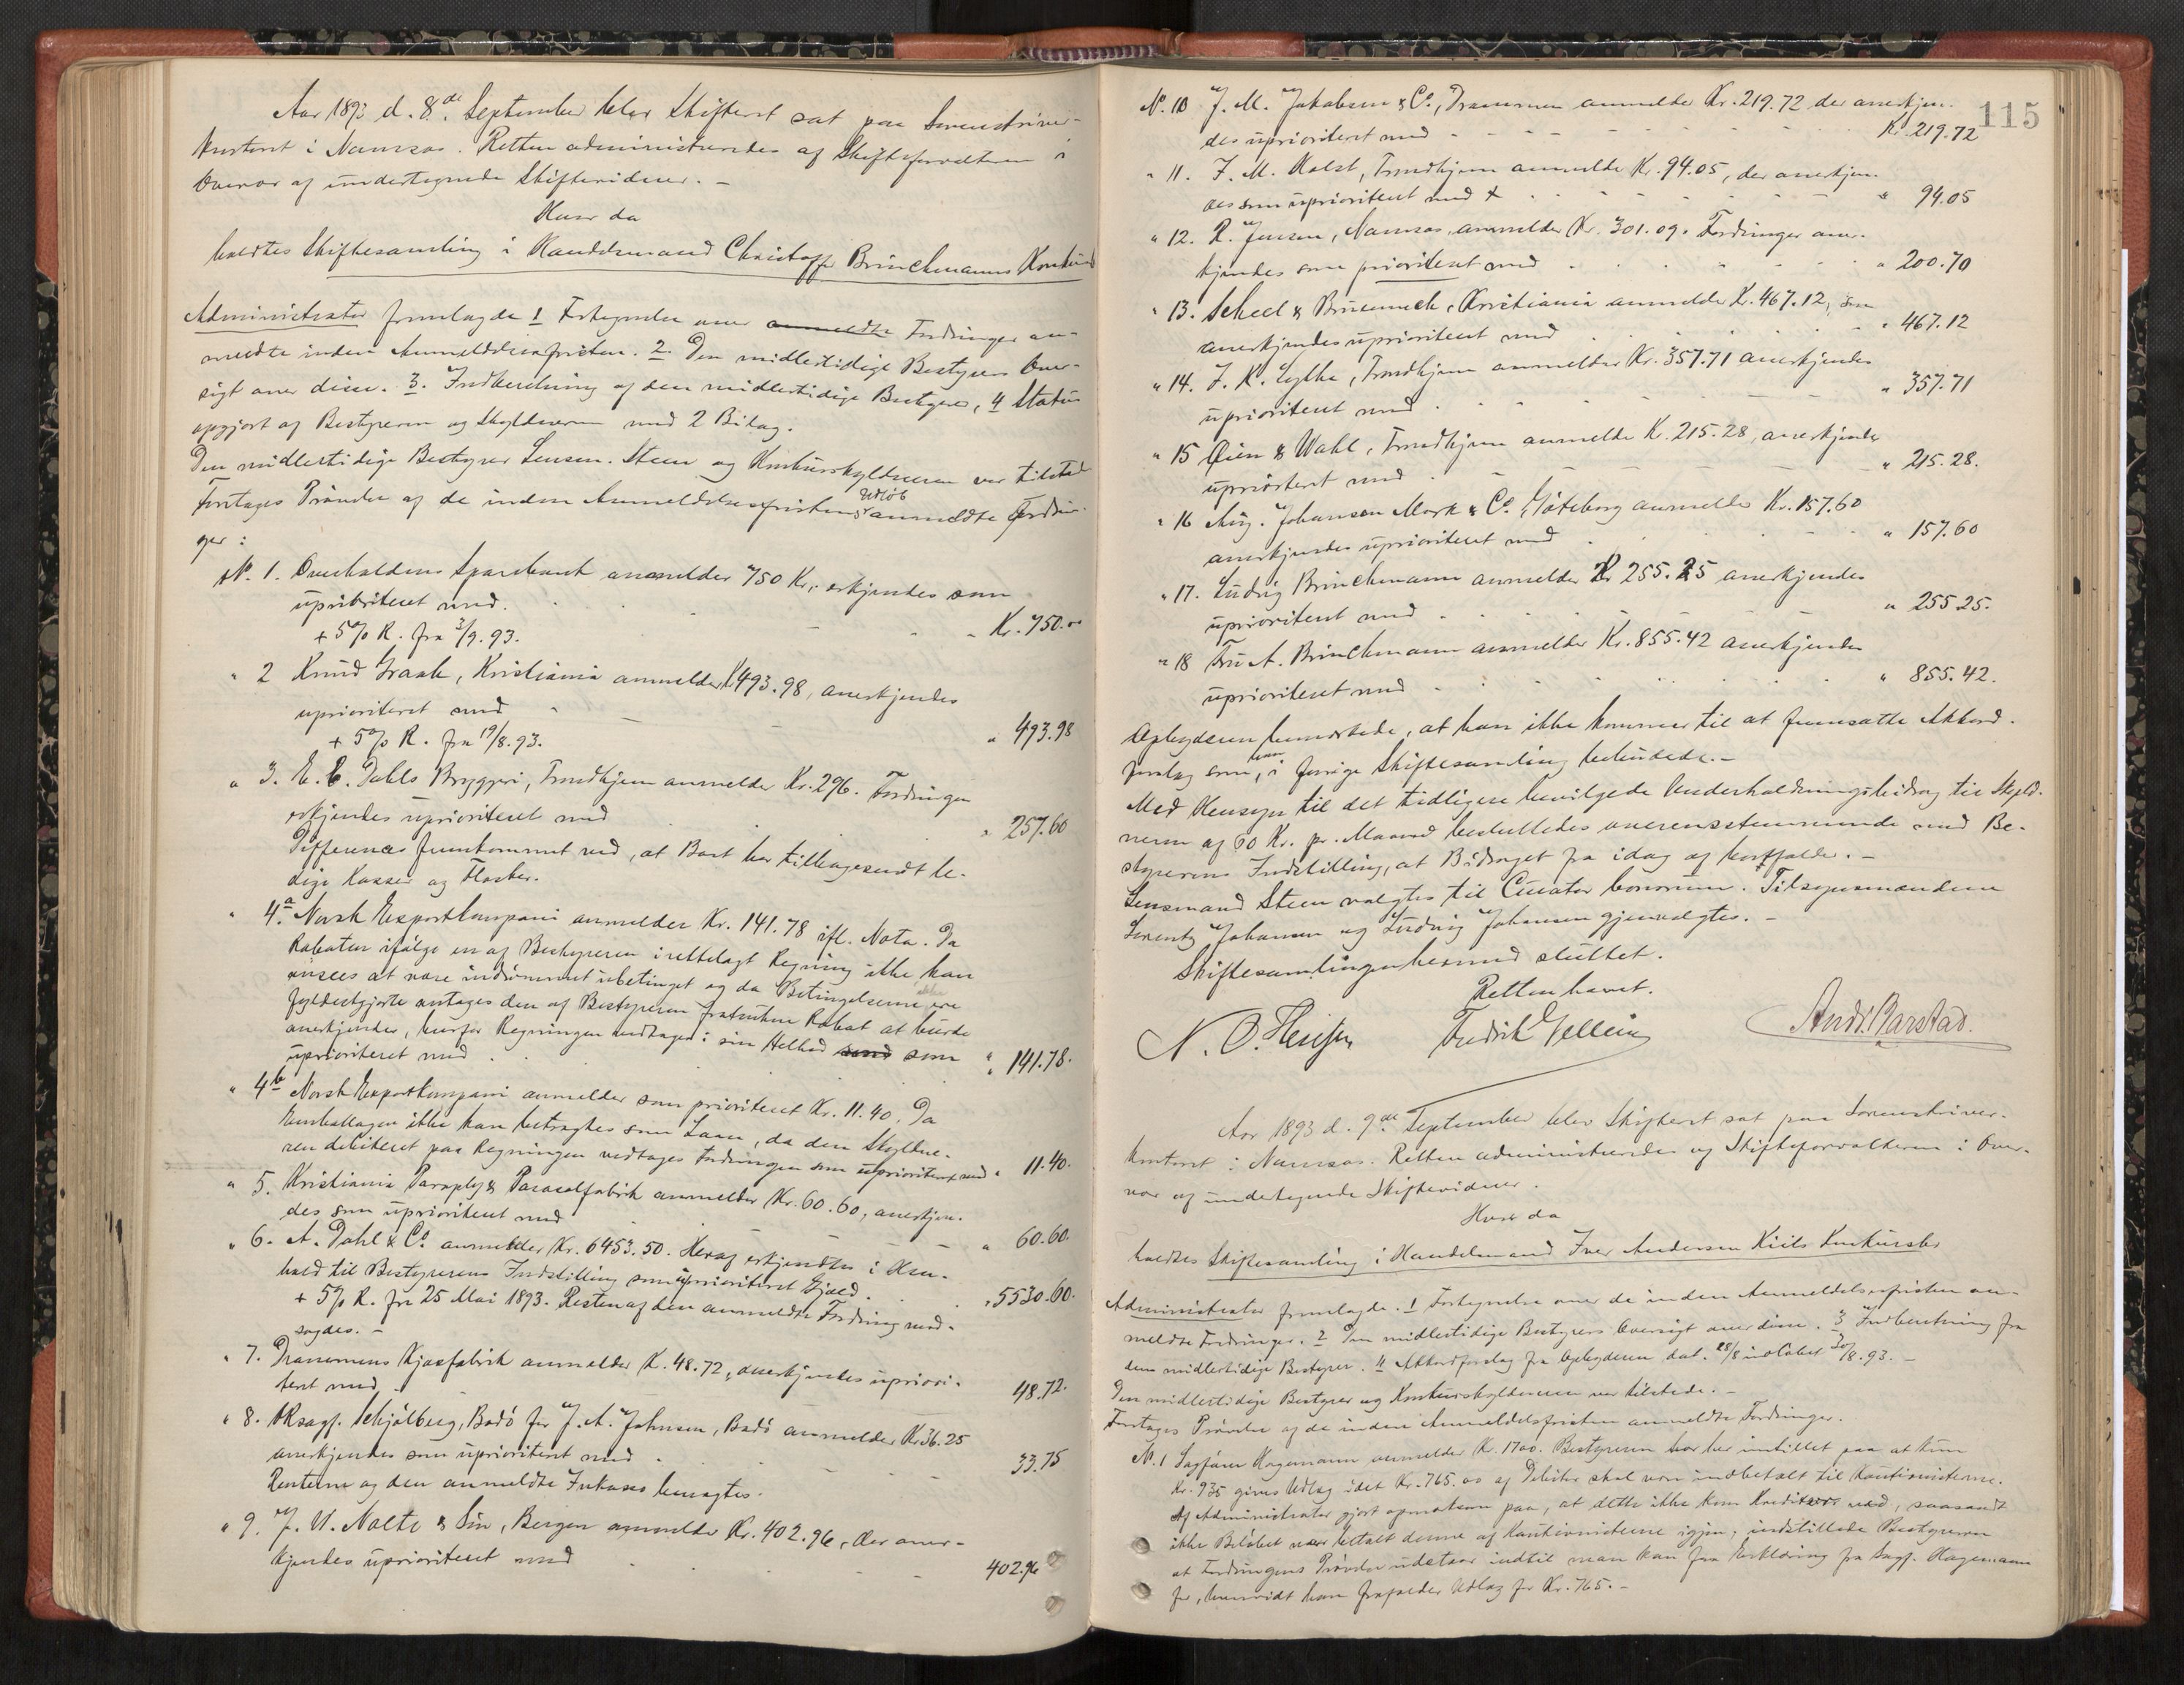 Aar 1893 d. 8de September blev Skifteret sat paa Sorenskriver-
kontoret i Namsos. Retten administreredes af Skifteforvalteren i
Overvær af undertegnede Skiftevidner. –
Hvor da
holdtes Skiftesamling i Handelsmand Christoffer Brinchmanns Konkurs
Administrator fremlagde 1 Fortegnelse over anmeldte Fordringer an-
meldte inden Anmeldelsesfristen. 2. Den midlertidige Bestyrers Over-
sigt over disse. 3. Indberetning af den midlertidige Bestyrer, 4 Status
opgjort af Bestyreren og Skyldneren med 2 Bilag.
Den midlertidige Bestyrer Lensm. Steen og Konkursskyldneren var tilstede
Foretages Prøvelse af de inden Anmeldelsesfristens Udløb anmeldte Fordrin-
ger:
No. 1. Overhaldens Sparebank anmelder 750 Kr., erkjendes som
uprioriteret med. Kr. 750.00
+ 5% R. fra 3/9. 93.
" 2 Knud Graah, Kristiania anmelder K 493.98, anerkjendes
uprioriteret med " 493.98
+ 5% R. fra 19/8. 93.
" 3. E. C. Dahls Bryggeri, Trondhjem anmelder Kr. 296. Fordringen
erkjendes uprioriteret med " 257.60
Differencen fremkommet ved, at Boet har tilbagesendt le-
dige Kasser og Flasker.
" 4.a Norsk Exportkompani anmelder Kr. 141.78 ifl. Nota. Da
Rabatten ifølge en af Bestyreren irettelagt Regning ikke kan
ansees at være indrømmet ubetinget og da Betingelserne ikke ere
fyldestgjorte antages den af Bestyreren fratrukne Rabat at burde
anerkjendes, hvorfor Regningen medtages i sin Helhed med som
uprioriteret med " 141.78.
" 4b Norsk Exportkompani anmelder som prioriteret Kr. 11.40. Da
Emballagen ikke kan betragtes som Laan, da den Skyldne-
ren debiteret paa Regningen vedtages Fordringen som uprioriteret med " 11.40.
" 5. Kristiania Paraply & Parasolfabrik anmelder Kr. 60.60, anerkjen-
des som uprioriteret med " 60.60.
" 6. A. Dahl & Co. anmelder Kr. 6453.50. Heraf erkjendtes i Hen-
hold til Bestyrerens Indstilling som uprioriteret Gjæld. " 5530.60.
+ 5% R. fra 25 Mai 1893. Resten af den anmeldte Fordring mod-
sagdes. –
" 7. Drammens Kjoefabrik anmelder K. 48.72, anerkjendes upriori-
teret med 48.72.
" 8. ORsagf. Schjølberg, Bodø for J. A. Johnsen, Bodø anmelder Kr 36.25
anerkjendes som uprioriteret med 33.75
Renterne og den anmeldte Inkasso benegtes.
" 9. J. W. Nolte & Søn, Bergen anmelder Kr. 402.96, der aner-
kjendes uprioriteret med 402.96
115
No. 10 J. M. Jakobsen & Co., Drammen anmelder Kr. 219.72 der anerkjen-
des uprioriteret med Kr. 219.72
" 11. F. M. Holst, Trondhjem anmeldte Kr. 94.05, der anerkjen-
des som uprioriteret med " 94.05
" 12. R. Jensen, Namsos, anmelder Kr. 301.09. Fordringer aner-
kjendes som prioriteret med " 200.70
" 13. Scheel & Bruenech, Kristiania anmelder K. 467.12, som
anerkjendes uprioriteret med " 467.12
" 14. J. K. Lykke, Trondhjem anmelder Kr. 357.71 anerkjendes
uprioriteret med " 357.71
" 15 Øien & Wahl, Trondhjem anmelder K. 215.28, anerkjendes
uprioriteret med " 215.28.
" 16 Aug. Johansen Mark & Co., Göteborg anmelder Kr. 157.60
anerkjendes uprioriteret med " 157.60
" 17. Ludvig Brinchmann anmelder Kr 255.25 anerkjendes
uprioriteret med " 255 25.
" 18 Fru A. Brinchmann anmelder Kr. 855.42 anerkjendes
uprioriteret med " 855.42.
Opbyderen bemærkede, at han ikke kommer til at fremsætte Akkord-
forslag som han i forrige Skiftesamling bebudede. –
Med Hensyn til det tidligere bevilgede Underholdningsbidrag til Skyld-
neren af 60 Kr. pr. Maaned besluttedes overensstemmende med Be-
styrerens Indstilling, at Bidraget fra idag af bortfalder. –
Lensmand Steen valgtes til Curator bonorum. Tilsynsmændene
Lorentz Johansen og Ludvig Johansen gjenvalgtes. –
Skiftesamlingen hermed sluttet.
Retten hævet.
Fredrik Gellein
Ands. Barstad.
Aar 1893 d. 9de September blev Skifteret sat paa Sorenskriver-
kontoret i Namsos. Retten administreredes af Skifteforvalteren i Over-
vær af undertegnede Skiftevidner.
Hvor da
holdtes Skiftesamling i Handelsmand Iver Andersen Kiils Konkursbo
Administrator fremlagde. 1 Fortegnelse over de inden Anmeldelsesfristen an-
meldte Fordringer. 2 Den midlertidige Bestyrers Oversigt over disse. 3 Indberetning fra
den midlertidige Bestyrer. 4 Akkordforslag fra Opbyderen dat. 28/8 indløbet 30/8. 93. –
Den midlertidige Bestyrer og Konkursskyldneren var tilstede. –
Foretages Prøvelse af de inden Anmeldelsfristen anmeldte Fordringer.
No. 1 Sagfører Hagemann anmelder Kr. 1700. Bestyreren har her indstillet paa at kun
Kr. 935 gives Udlæg idet Kr. 765.00 af Debitor skal være indbetalt til Kautionisterne.
Af Administrator gjort opmærksom paa, at dette ikke kom Kreditor ved, saasandt
ikke Beløbet var betalt denne af Kautionisterne igjen, indstillede Bestyreren
at Fordringens Prøvelse udstaar indtil man kan faa Erklæring fra Sagf. Hagemann
for, hvorvidt han frafalder Udlæg for Kr. 765. –